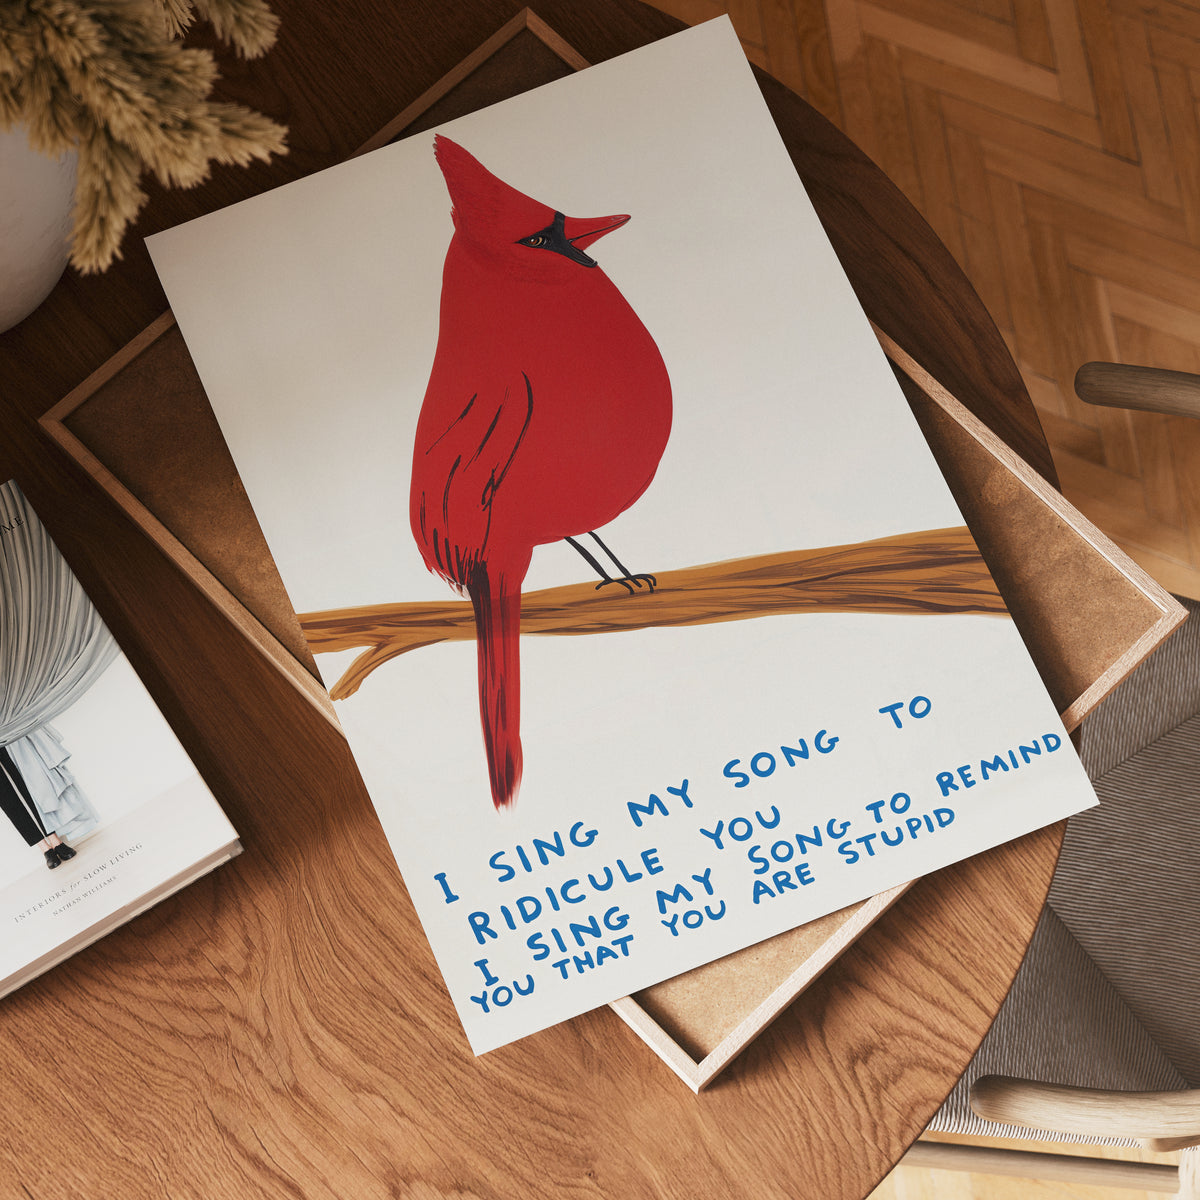 I SING MY SONG TO
RIDICULE YOU
I SING MY SONG TO REMIND
YOU THAT YOU ARE STUPID
ME
INTERIORS for SLOW LIVING
NATHAN WILLIAMS